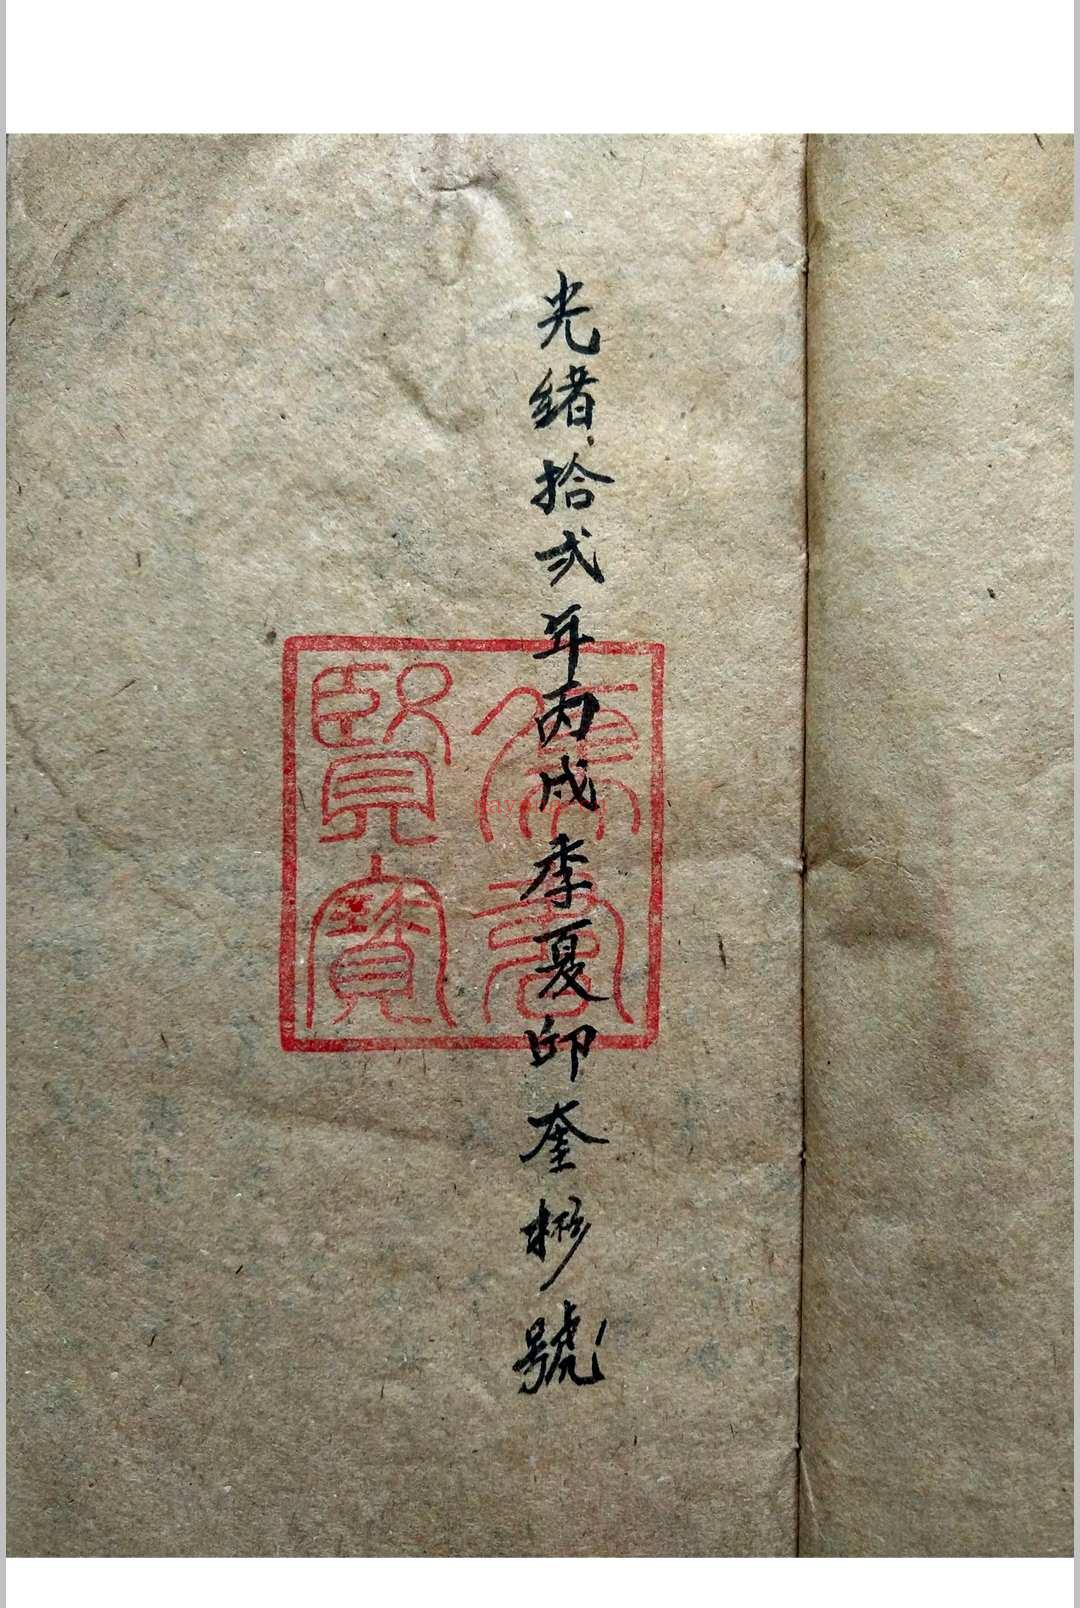 光緒拾弍年丙戌季夏邱奎彬號
賢寶